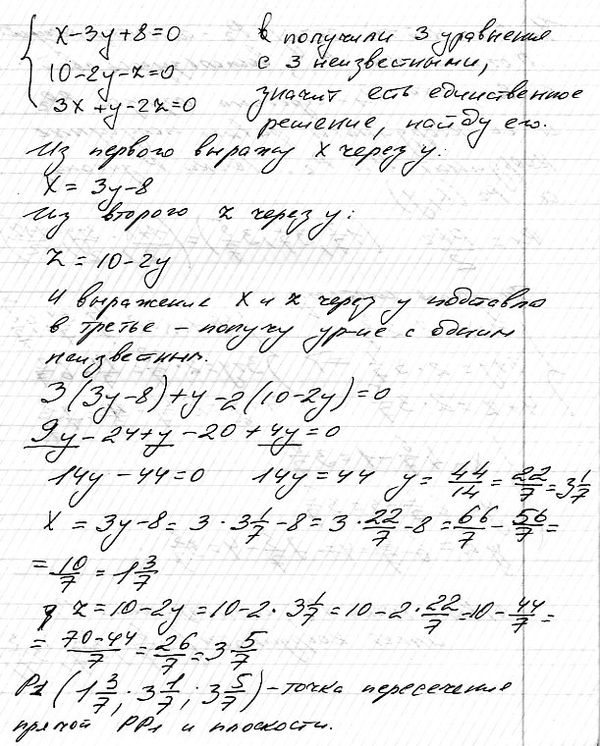 x-3y+8=0 получили 3 уравнения
10-2y-z=0 с 3 неизвестными,
3x+y-2z=0 значит есть единственное
решение, найду его.
Из первого выражу x через y:
x = 3y-8
Из второго z через y:
z = 10-2y
И выражение x и z через y подставлю
в третье – получу ур-ие с одним
неизвестным.
3(3y-8)+y-2(10-2y)=0
9y-24+y-20+4y=0
14y-44=0 14y=44 y= 44/14 = 22/7 = 3 1/7
x = 3y-8 = 3·3 1/7 -8 = 3·22/7 -8 = 66/7 - 56/7 =
= 10/7 = 1 3/7
z = 10-2y = 10-2·3 1/7 = 10-2·22/7 = 10- 44/7 =
= 70-44/7 = 26/7 = 3 5/7
(1 3/7; 3 1/7; 3 5/7) – точка пересечение
прямой PP1 и плоскости.